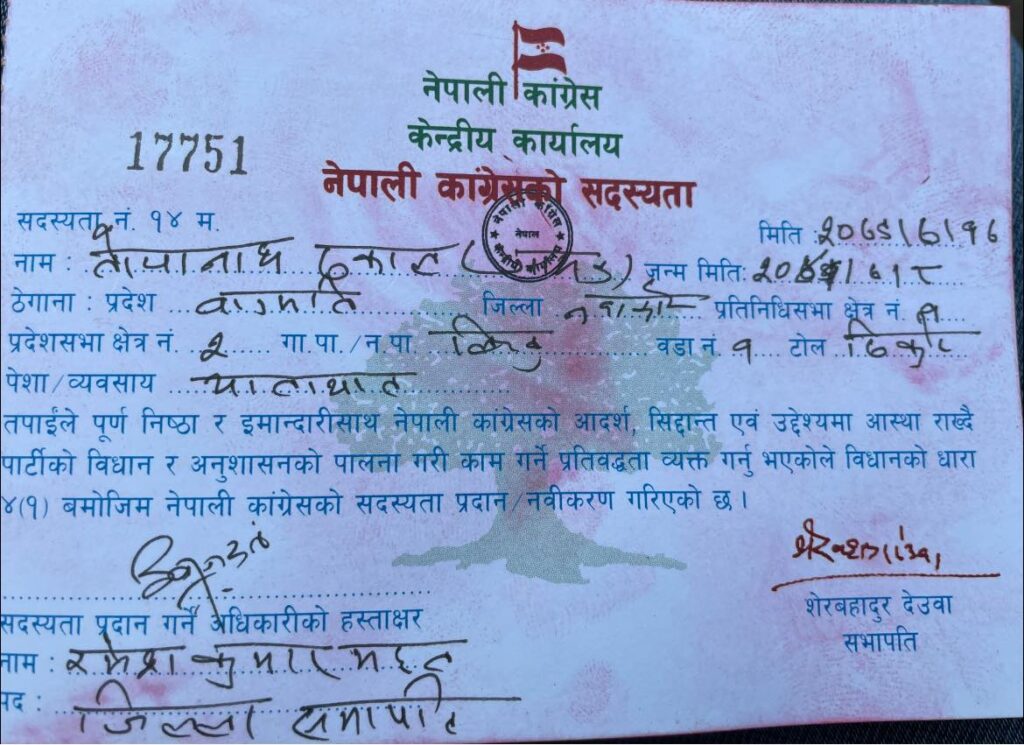 नेपाली कांग्रेस
केन्द्रीय कार्यालय
17751
नेपाली कांग्रेसको सदस्यता
सदस्यता नं. १४ म.
मिति : २०७९।६।१६
नाम : तोयानाथ ढकाल जन्म मिति:
ठेगाना : प्रदेश वाग्मति जिल्ला प्रतिनिधिसभा क्षेत्र नं. १
प्रदेशसभा क्षेत्र नं. २ गा.पा./न.पा वडा नं. १ टोल
पेशा/व्यवसाय यातायात
तपाईंले पूर्ण निष्ठा र इमान्दारीसाथ नेपाली कांग्रेसको आदर्श, सिद्दान्त एवं उद्देश्यमा आस्था राख्दै
पार्टीको विधान र अनुशासनको पालना गरी काम गर्ने प्रतिवद्धता व्यक्त गर्नु भएकोले विधानको धारा
४(१) बमोजिम नेपाली कांग्रेसको सदस्यता प्रदान/नवीकरण गरिएको छ।
शेरबहादुर देउवा
सभापति
सदस्यता प्रदान गर्ने अधिकारीको हस्ताक्षर
नाम : रमेश कुमार महत
पद : जिल्ला सभापति